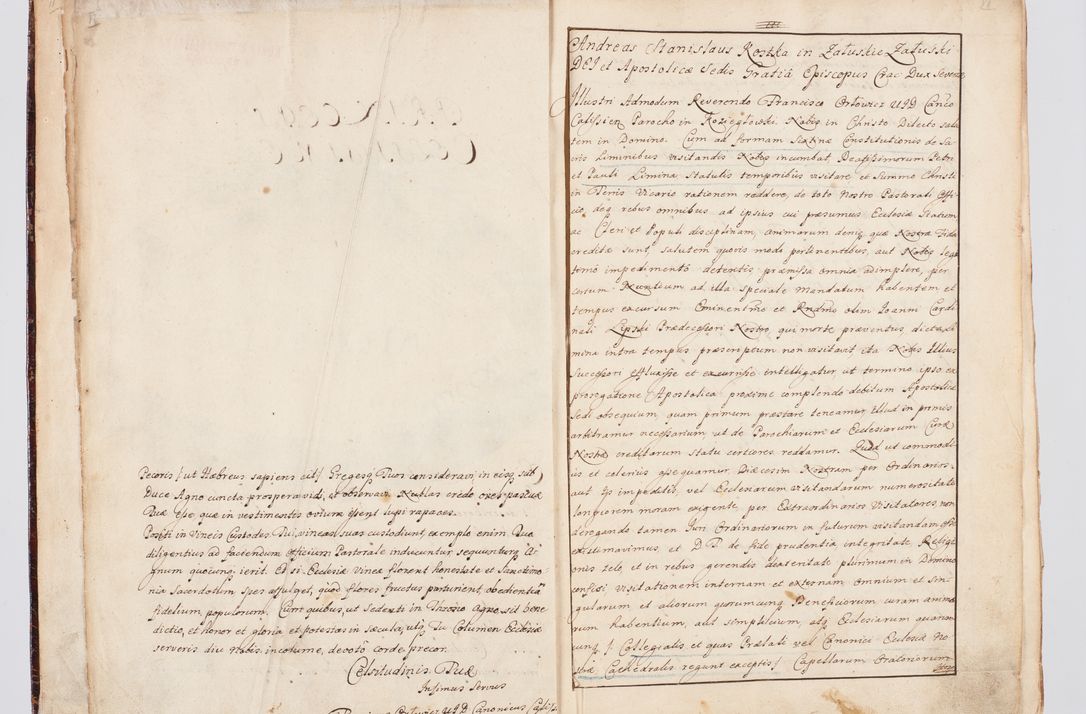 Pecoris (ut Hæbreus sapiens ait) Gregesq Tuos consideravi, in eisq sub
Duce Agno cuncta prospera vidi, ut observavi. Nullas credo oves pascuæ
Tuæ esse, quæ in vestimentis ovium essent lupi rapaces.
Positi in Vineis Custodes Tui, vineas suas custodiunt, exemplo enim Tuo
diligentius ad faciendum officium Pastorale inducuntur, sequuntur A-
gnum quocunq ierit. Et si Ecclesiæ Vineæ florent honestate et Sanctimo-
nia Sacerdotum Spes affulget, quod flores fructus parturient, obedientia
fidelium, populorum. Cum quibus, ut Sedenti in Throno Agno sit bene
dictio, et honor et gloria et potestas in sæcula, utq Tu Columen Ecclesiæ
serveris diu Nobis incolume, devoto corde precor.
Celsitudinis Tuæ
Infimus Servus
Ortowicz UID Canonicus
Andreas Stanislaus Kostka in Załuskie Załuski
DEI et Apostolicæ Sedis Gratia Episcopus Crac Dux Severiæ
Illustri Admodum Reverendo Francisco Ortowicz UID Canco
Calissien Parocho in Koziegłowski Nobis in Christo Dilecto salu
tem in Domino. Cum ad formam Sextinæ Constitutionis de Sa-
cris Liminibus visitandis Nobis incumbat, Beatissimorum Petri
et Pauli Limina Statutis temporibus visitare et Summo Christi
in Terris Vicario rationem reddere, de toto Nostro Pastorali Offi
cio, deq rebus omnibus ad ipsius cui præsumus Ecclesiæ Statum
ac Cleri et Populi disciplinam, animarum deniq quæ Nostræ Fidei
creditæ sunt, salutem quovis modo pertinentibus, aut Nobis legi
timo impedimento detentis præmissa omnia adimplere, per
certum Nuntium ad illa speciale Mandatum habentem et
tempus excursum Eminentmo et Rndmo olim Joanni Cardi
nali Lipski Prædecessori Nostro, qui morte præventus dicta Li
mina intra tempus præscriptum non visitavit ita Nobis Illius
Successori effluxisse et excurrisse intelligatur, ut termino ipso ex
prorogatione Apostolica proxime complendo debitum Apostolicæ
Sedi obsequium quam primum præstare teneamur, Illud in primis
arbitramur necessarium, ut de Parochiarum et Ecclesiarum Curæ
Nostræ creditarum Statu certiores reddamur. Quod ut commodi
us et celerius assequamur, Diæcesim Nostram per Ordinarios,
aut Iis impeditis, vel Ecclesiarum visitandarum numerositate
longiorem moram exigente, per Extraordinarios Visitatores, non
derogando tamen Juri Ordinariorum in futurum visitandam esse
existimavimus, et D. T. de fide prudentia integritate Religi
onis zelo, et in rebus gerendis dexteritate plurimum in Domino
confisi visitationem internam et externam Omnium et Sin
gularum et aliorum quorumcunq Beneficiorum curam anima
rum habentium, aut simplicium, atq Ecclesiarum quarum
cunq (Collegialis et quas Prælati vel Canonici Ecclesiæ No
stræ Cathedralis regunt exceptis) Capellarum Oratoriorum